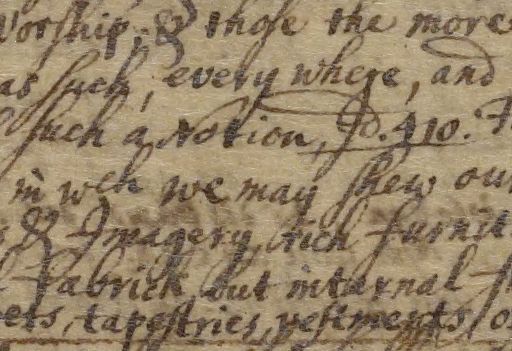 Worship, & those the more
as such, every where, and
such a Notion, Id. 410.
in wch we may shew our
& Imagery, rich furnit
Fabrick but internal
pets, tapestries, vestments, o